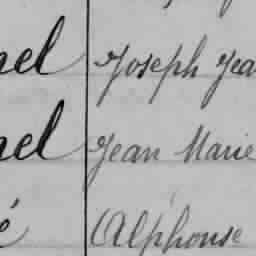 nel Joseph Jea
nel Jean Marie
é Alphonse